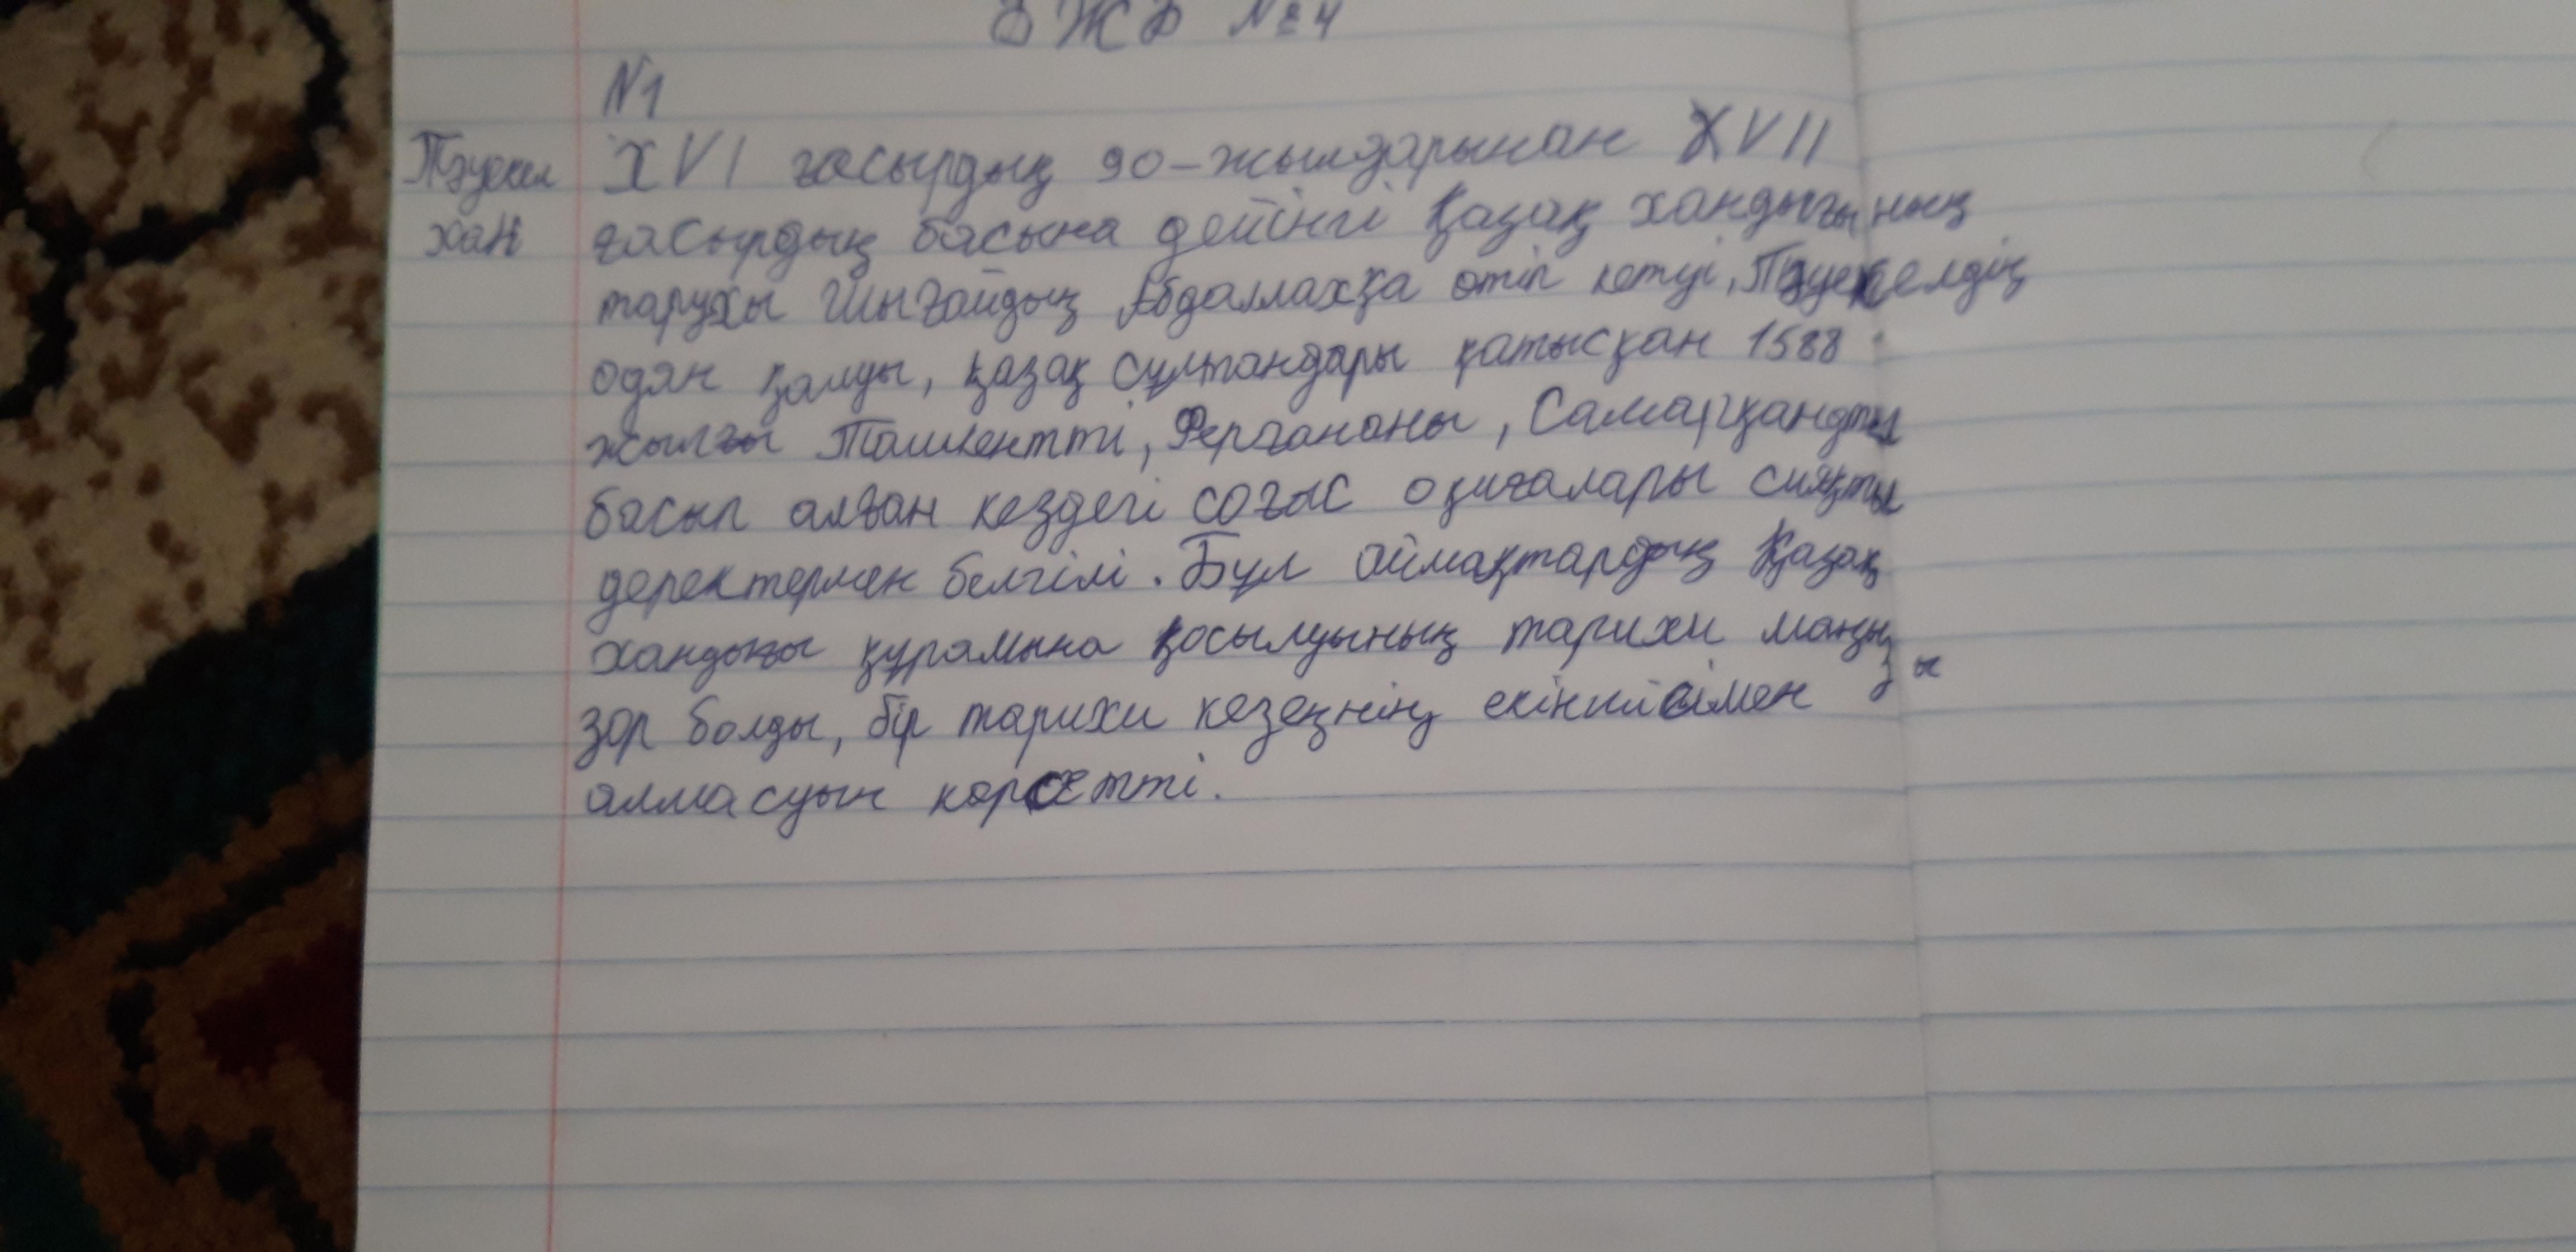 БЖБ №4
№1
Тәуекел XVI ғасырдың 90-жылдарынан XVII
хан ғасырдың басына дейінгі Қазақ хандығының
тарухы Шығайдың Абдаллахқа өтіп кетуі, Тәуекелдің
одан қалуы, қазақ сұлтандары қатысқан 1588
жылғы Ташкентті, Ферғананы, Самарқандты
басып алған кездегі соғыс оқиғалары сияқты
деректермен белгілі. Бұл аймақтардың Қазақ
хандығы құрамына қосылуының тарихи маңызы
зор болды, бір тарихи кезеңнің екіншісімен
алмасуын көрсетті.